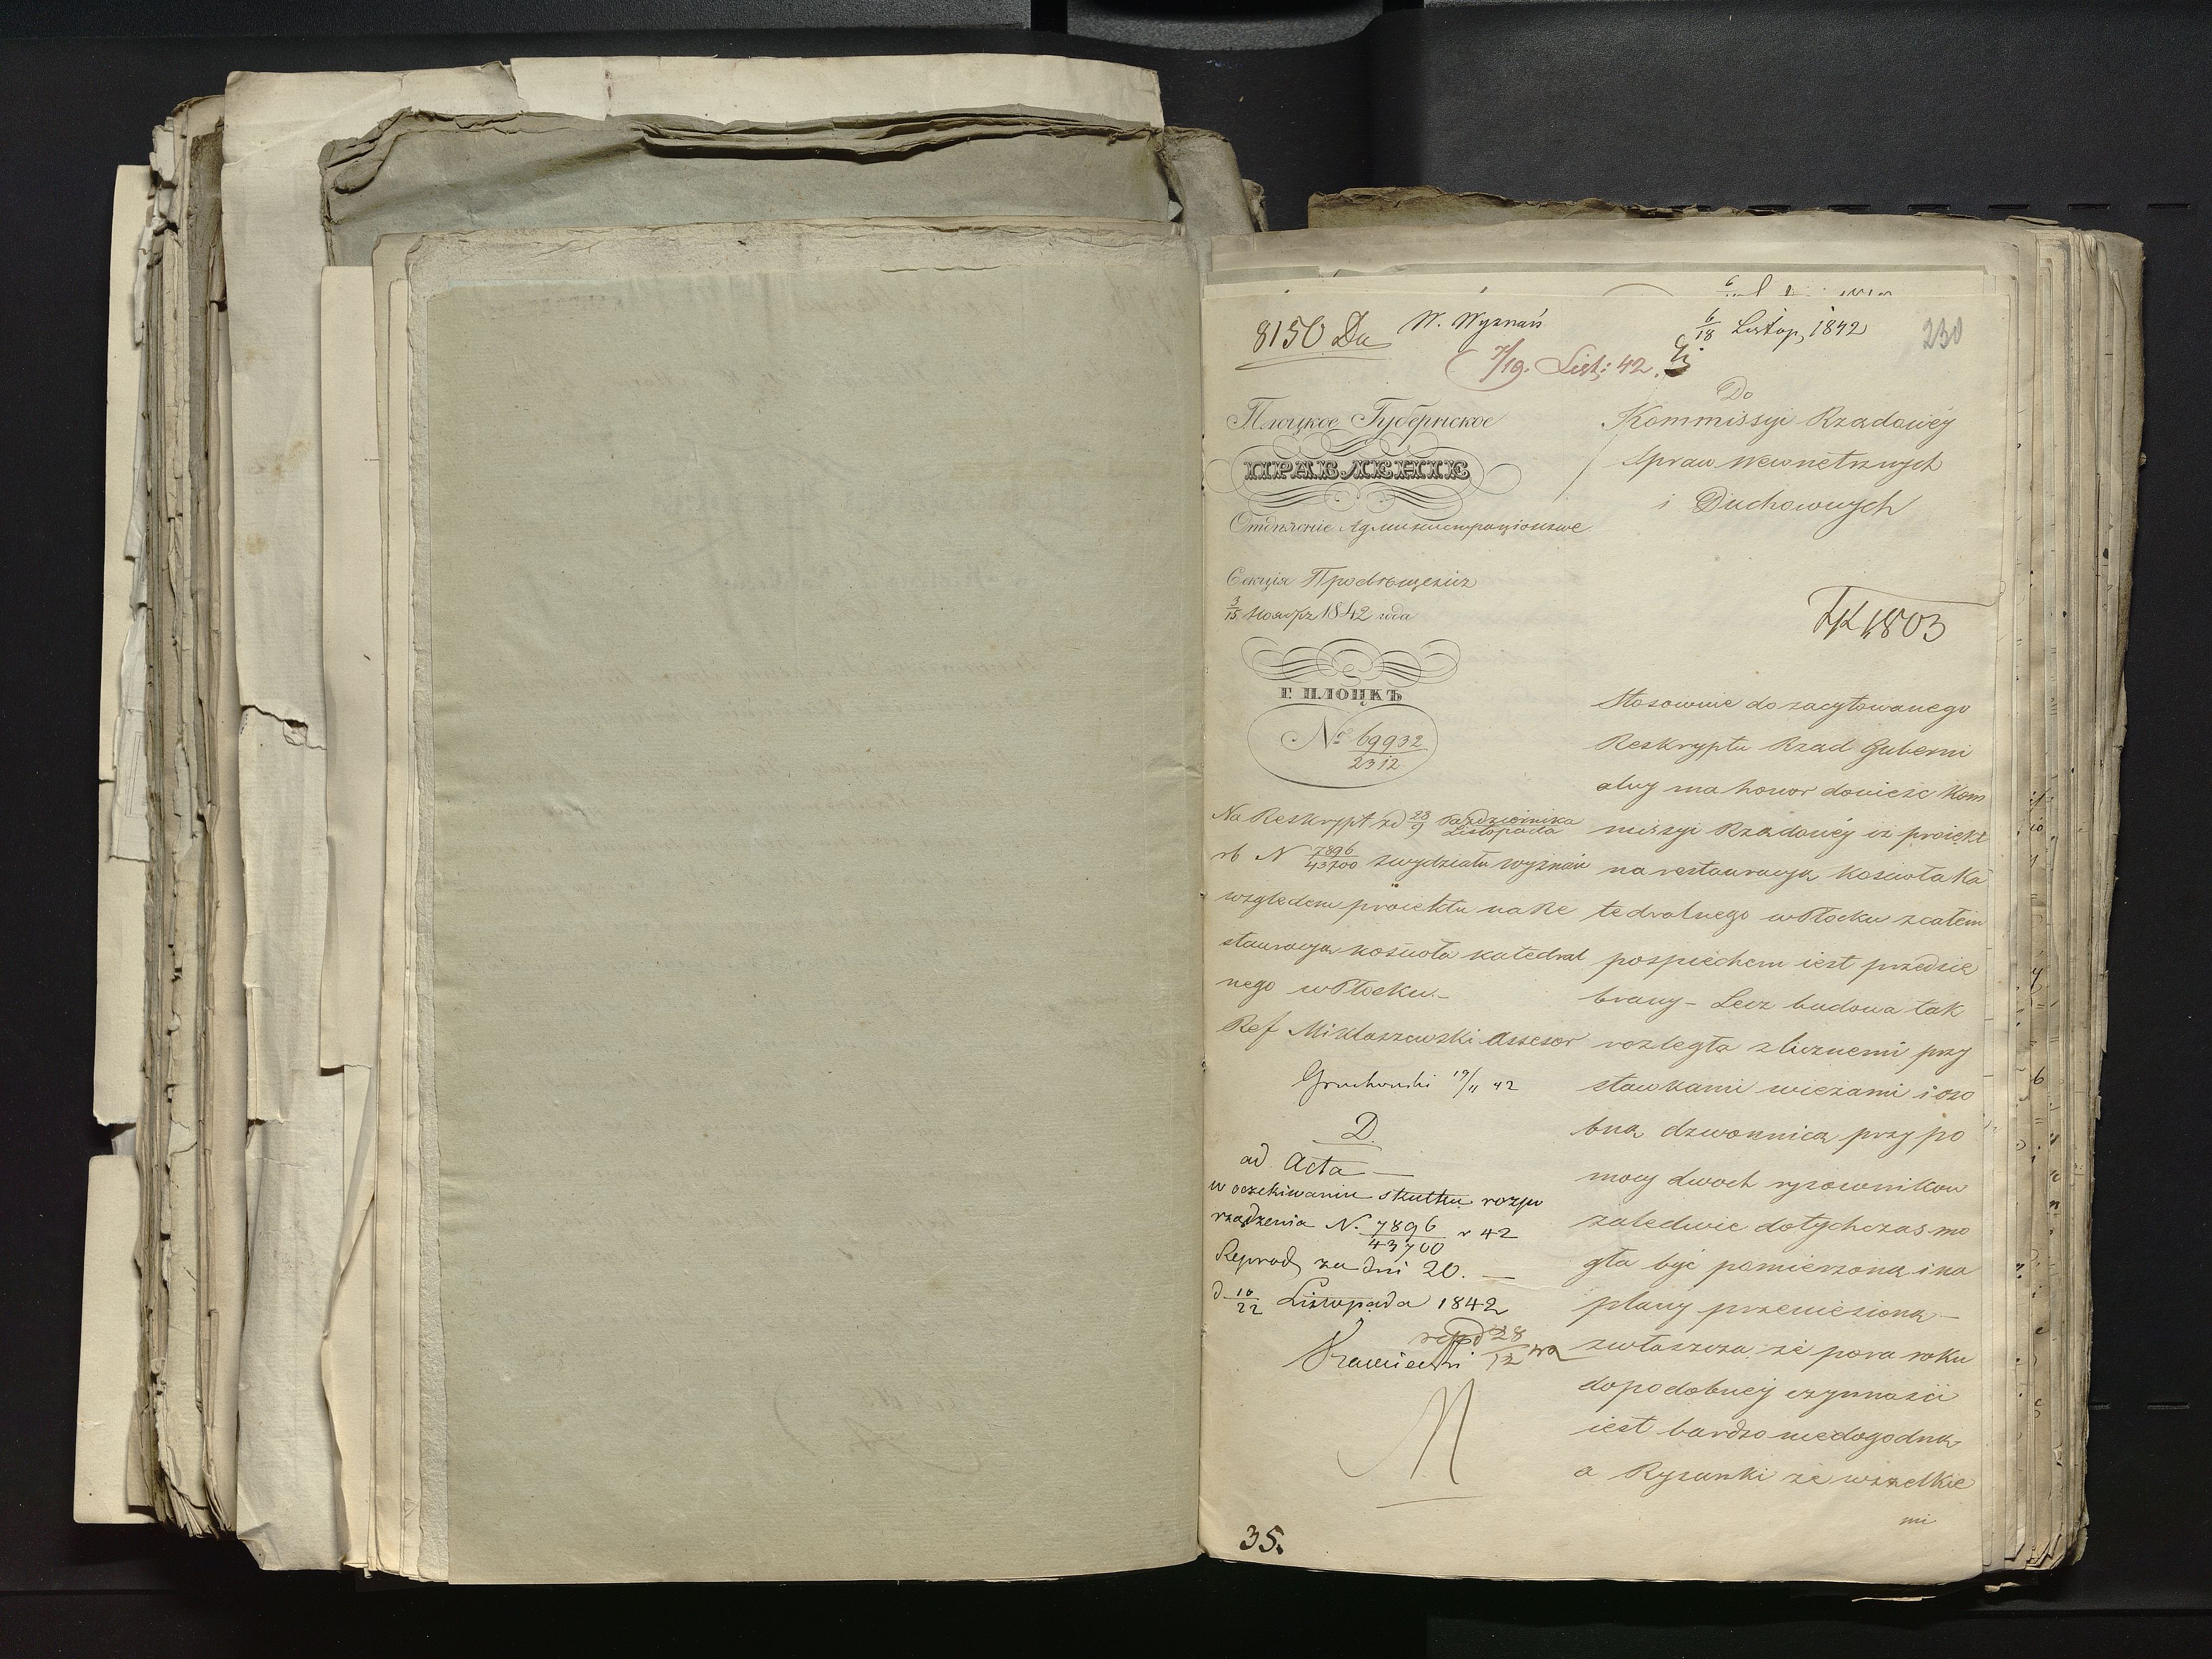 8150 Da
W. Wyznań
6/18 Listop, 1842
230
7/19. List: 42.
Плоцкое Губернское
ПРАВЛЕНІЕ
Отдѣленіе Администраціонное
Секція Просвѣщенія
3/15 Ноября 1842 года
Г. ПЛОЦКЪ
№ 69932/2312
Na Reskrypt zd 28/9 Października/Listopada
rb N 7896/43700 zwydziału wyznań
względem proiektu na Re
stauracyą kościoła katedral
nego w Płocku.-
Ref Miklaszewski Assesor
Gruchowski 19/11 42
D.
ad Acta —
w oczekiwaniu skutku rozpo
rządzenia N. 7896/43700 r 42
Reprod za dni 20. —
d 10/22 Listopada 1842
repd 28/12
35.
Do
Kommissyi Rządowéy
Spraw Wewnętrznych
i Duchownych
1803
Stosownie do zacytowanego
Reskryptu Rząd Guberni
alny ma honor donieść Kom
missyi Rządowéy iż proiekt
na restauracyą Kościoła Ka
tedralnego w Płocku z całem
pospiechem iest przedsię
brany - Lecz budowa tak
rozległa z licznemi przy
stawkami wieżami i oso
bną dzwonnicą przy po
mocy dwoch rysownikow
zaledwie dotychczas mo
gła być pomierzoną i na
plany przeniesioną —
zwłaszcza że pora roku
do podobnéy czynności
iest bardzo niedogodną
a Rysunki ze wszelkie
mi